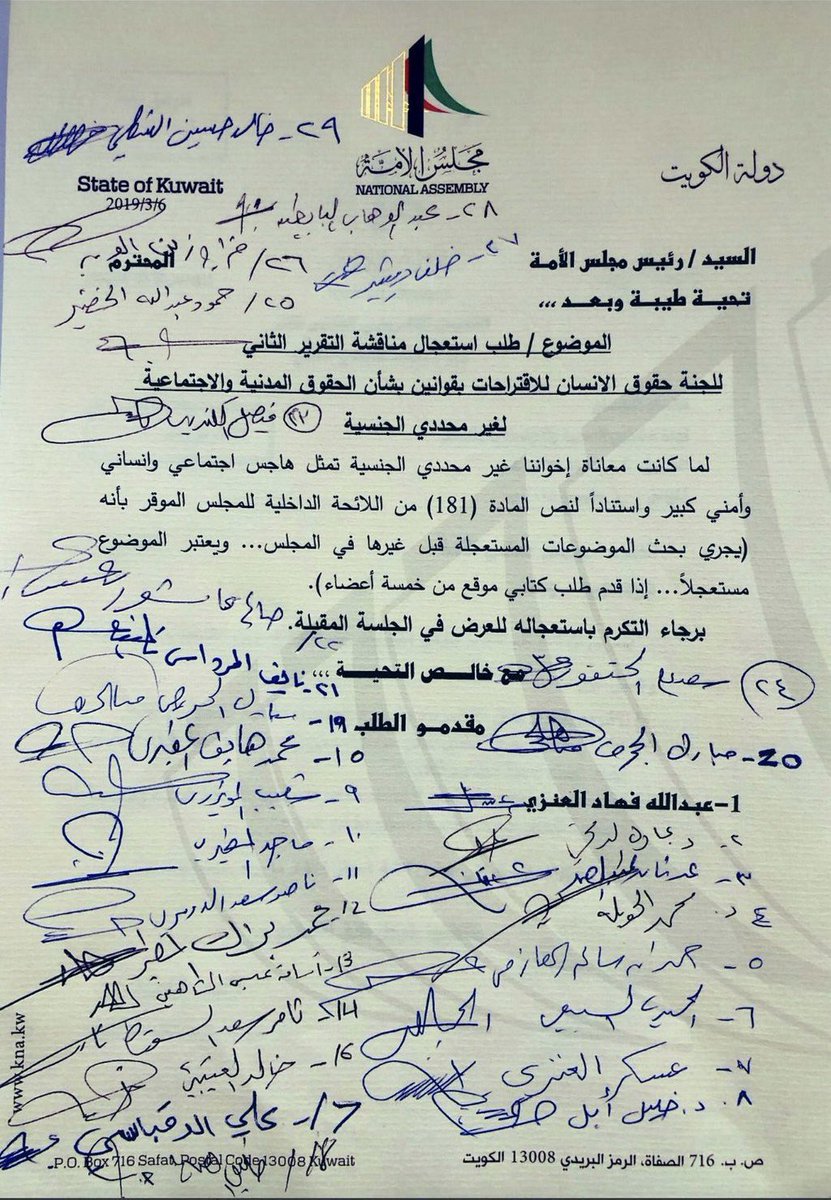 ٢٩- خالد حسين الشطي
مجلس الأمة
NATIONAL ASSEMBLY
دولة الكويت
State of Kuwait
2019/3/6
٢٨- عبد الوهاب البابطين
٢٧- خلف دميثير
السيد / رئيس مجلس الأمة
المحترم
٢٦/
تحية طيبة وبعـد ,,,
٢٥/ حمود عبدالله الخضير
الموضوع / طلب استعجال مناقشة التقرير الثاني
للجنة حقوق الانسان للاقتراحات بقوانين بشأن الحقوق المدنية والاجتماعية
لغير محددي الجنسية
فيصل الكندري
لما كانت معاناة إخواننا غير محددي الجنسية تمثل هاجس اجتماعي وانساني
وأمني كبير واستناداً لنص المادة (181) من اللائحة الداخلية للمجلس الموقر بأنه
(يجري بحث الموضوعات المستعجلة قبل غيرها في المجلس... ويعتبر الموضوع
مستعجلاً... إذا قدم طلب كتابي موقع من خمسة أعضاء).
صالح عاشور
برجاء التكرم باستعجاله للعرض في الجلسة المقبلة.
٢٢/
مع خالـص التحيـة ,,,
٢١ نايف المرداس
٢٤
مقدمـو الطلب
١٩-
20- مبارك الحجرف
١٥- محمد هايف المطيري
1-عبدالله فهاد العنزي
٩- شعيب المويزري
٢-
١٠- ماجد المطيري
٣- عدنان عبدالصمد
١١- ناصر سعد الدوسري
٤ د. محمد الحويلة
12/
٥- حمدان سالم العازمي
13- أسامة عيسى الشاهين
٦- الحميدي السبيعي
14- ثامر سعد السويط
٧- عسكر العنزي
16- خالد العتيبي
٨. د. خليل أبل
17- علي الدقباسي
18/
www.kna.kw
P.O. Box 716 Safat, Postal Code 13008 Kuwait
ص. ب. 716 الصفاة، الرمز البريدي 13008 الكويت